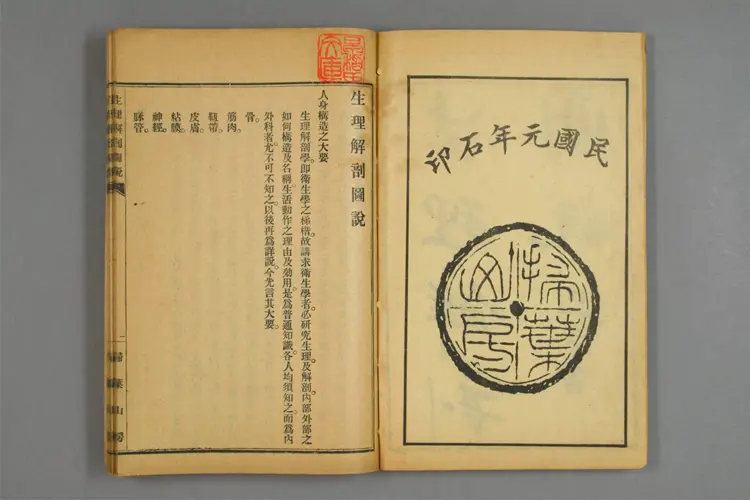 民國元年石印
掃葉山房
生理解剖圖說
人身構造之大要
生理解剖學。卽衛生學之梯楷。故講求衛生學者。必研究生理。及解剖內部外部之
如何構造及名稱生活動作之理由及効用。是爲普通知識各人均須知之而爲內
外科者。尤不可不知之。以後再爲詳說。今先言其大要。
骨。
筋肉。
靱帶。
皮膚。
粘膜。
神經。
脉管。
生理解剖圖說
掃葉山房